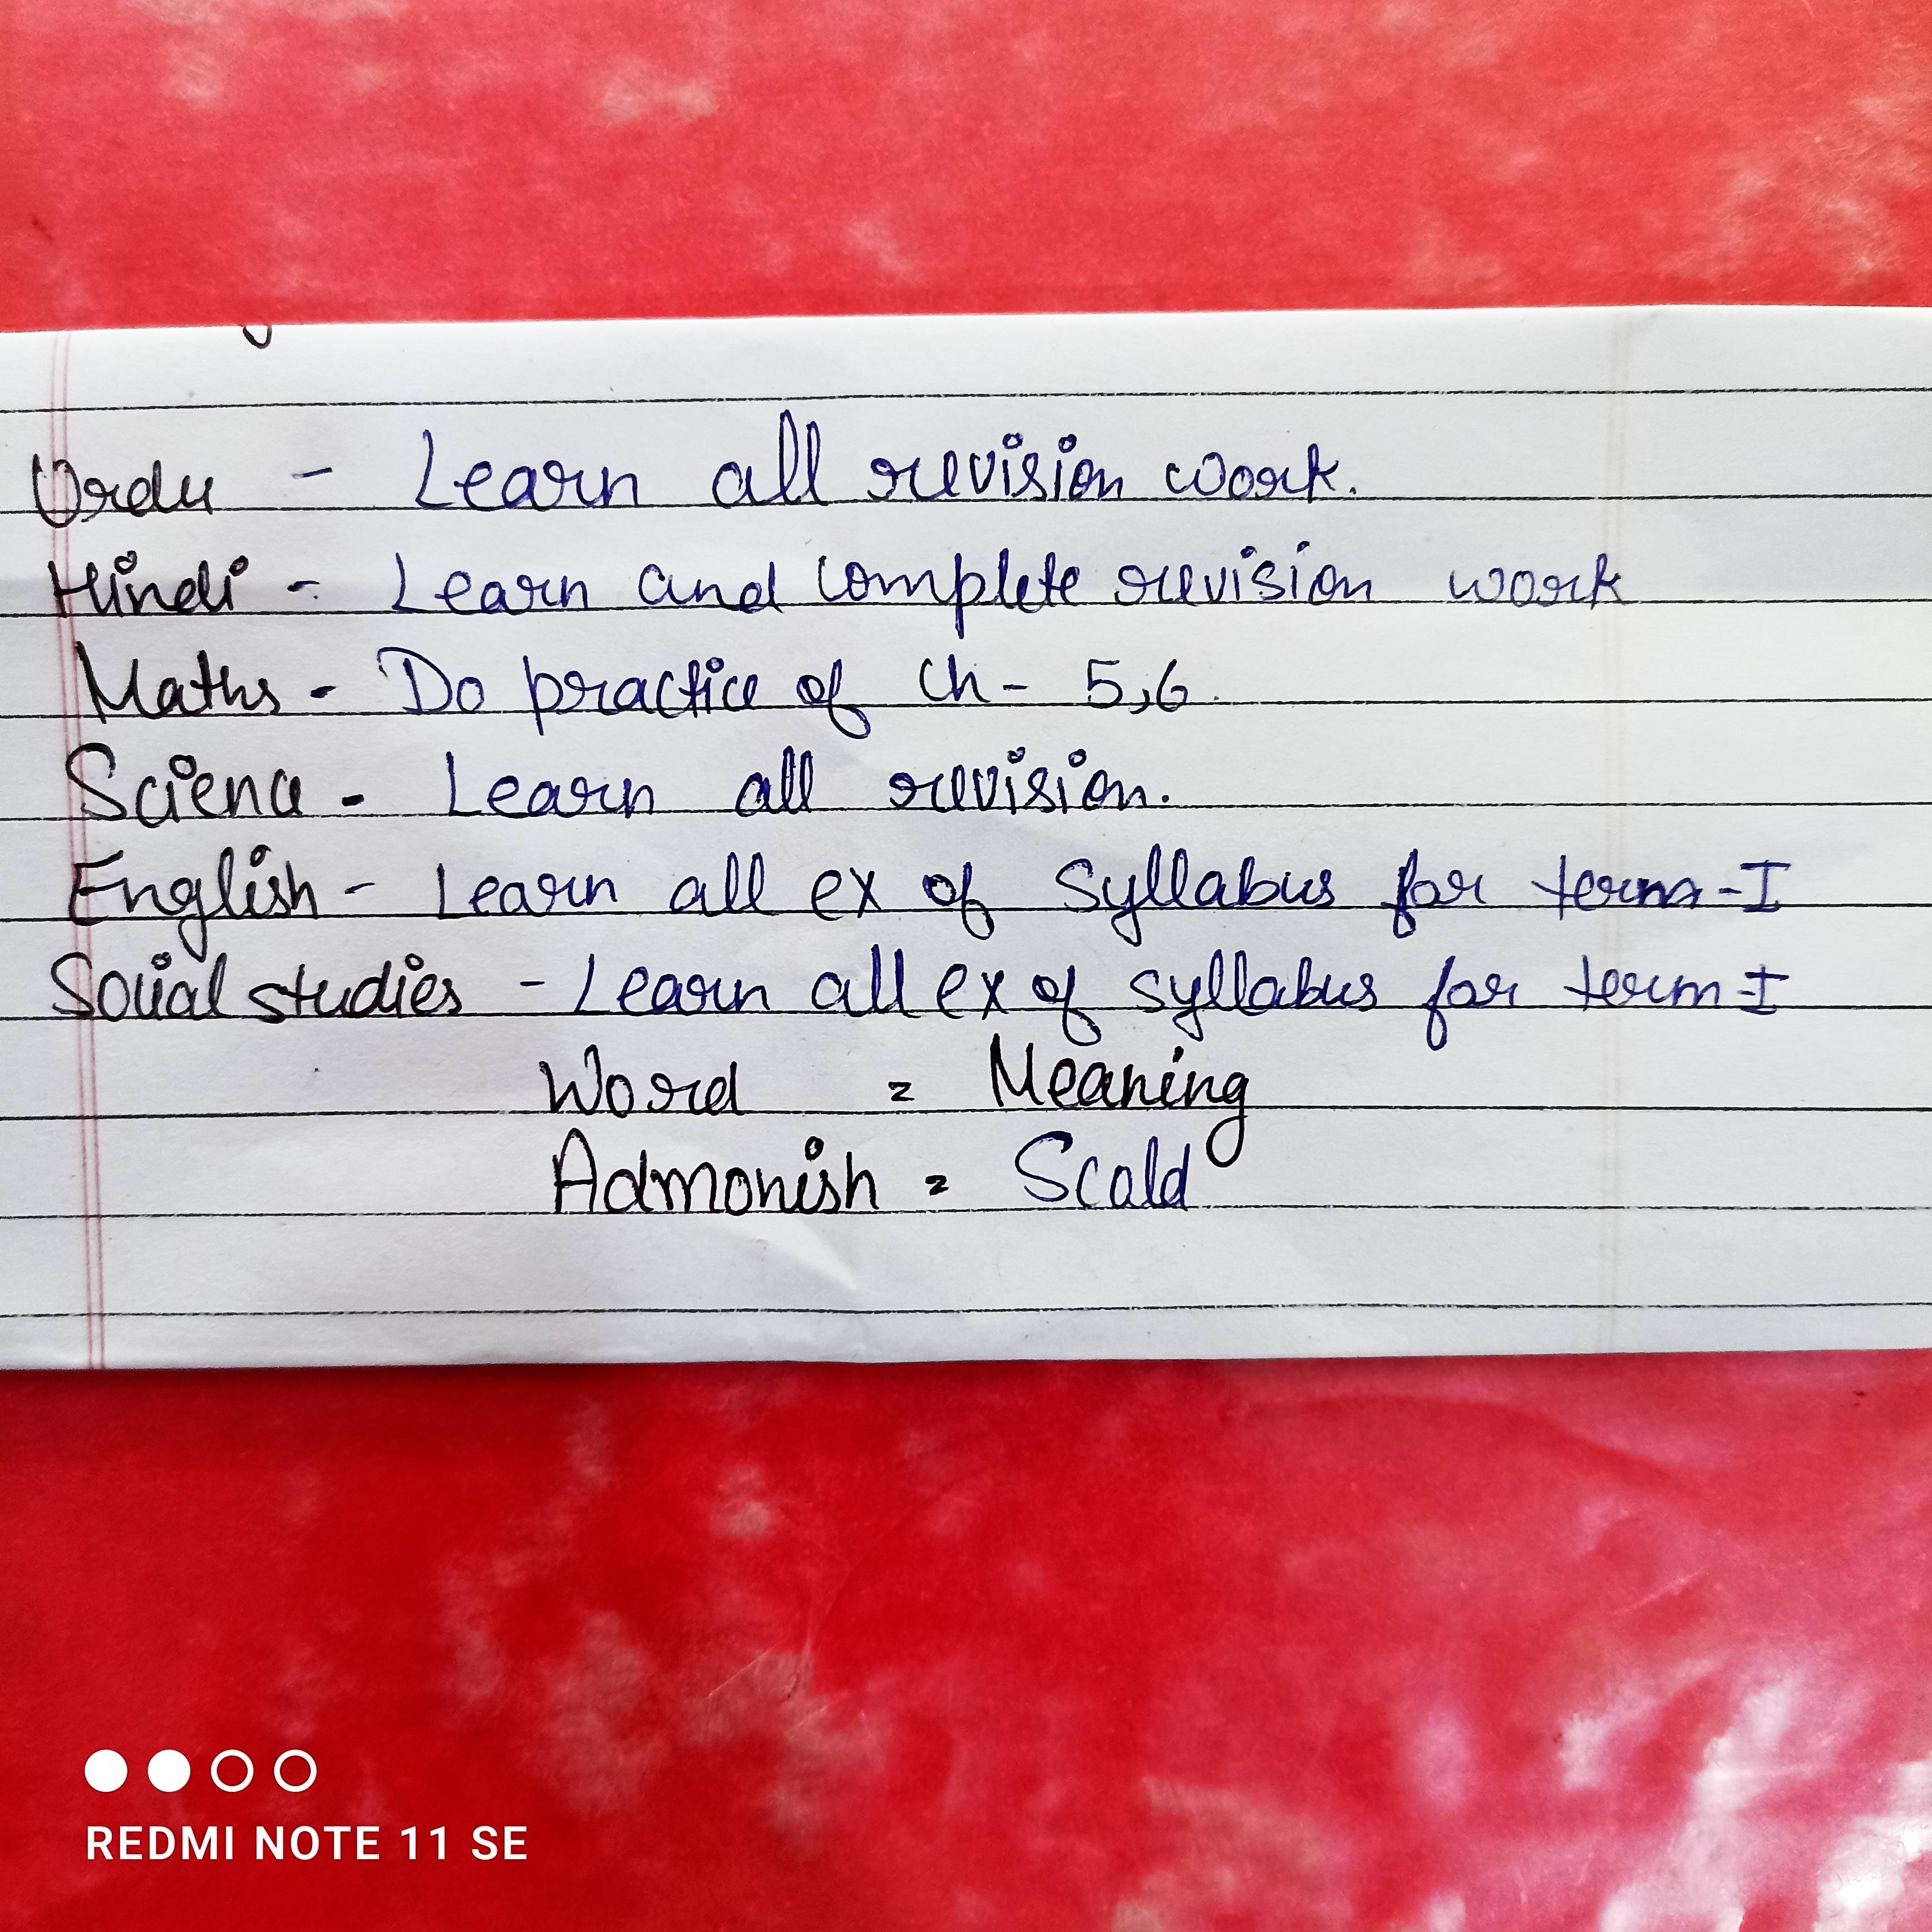 Urdu - Learn all revision work.
Hindi - Learn and complete revision work
Maths - Do practice of Ch - 5,6.
Science - Learn all revision.
English - Learn all ex of syllabus for term - I
Social studies - Learn all ex of syllabus for term - I
Word = Meaning
Admonish = Scald
REDMI NOTE 11 SE